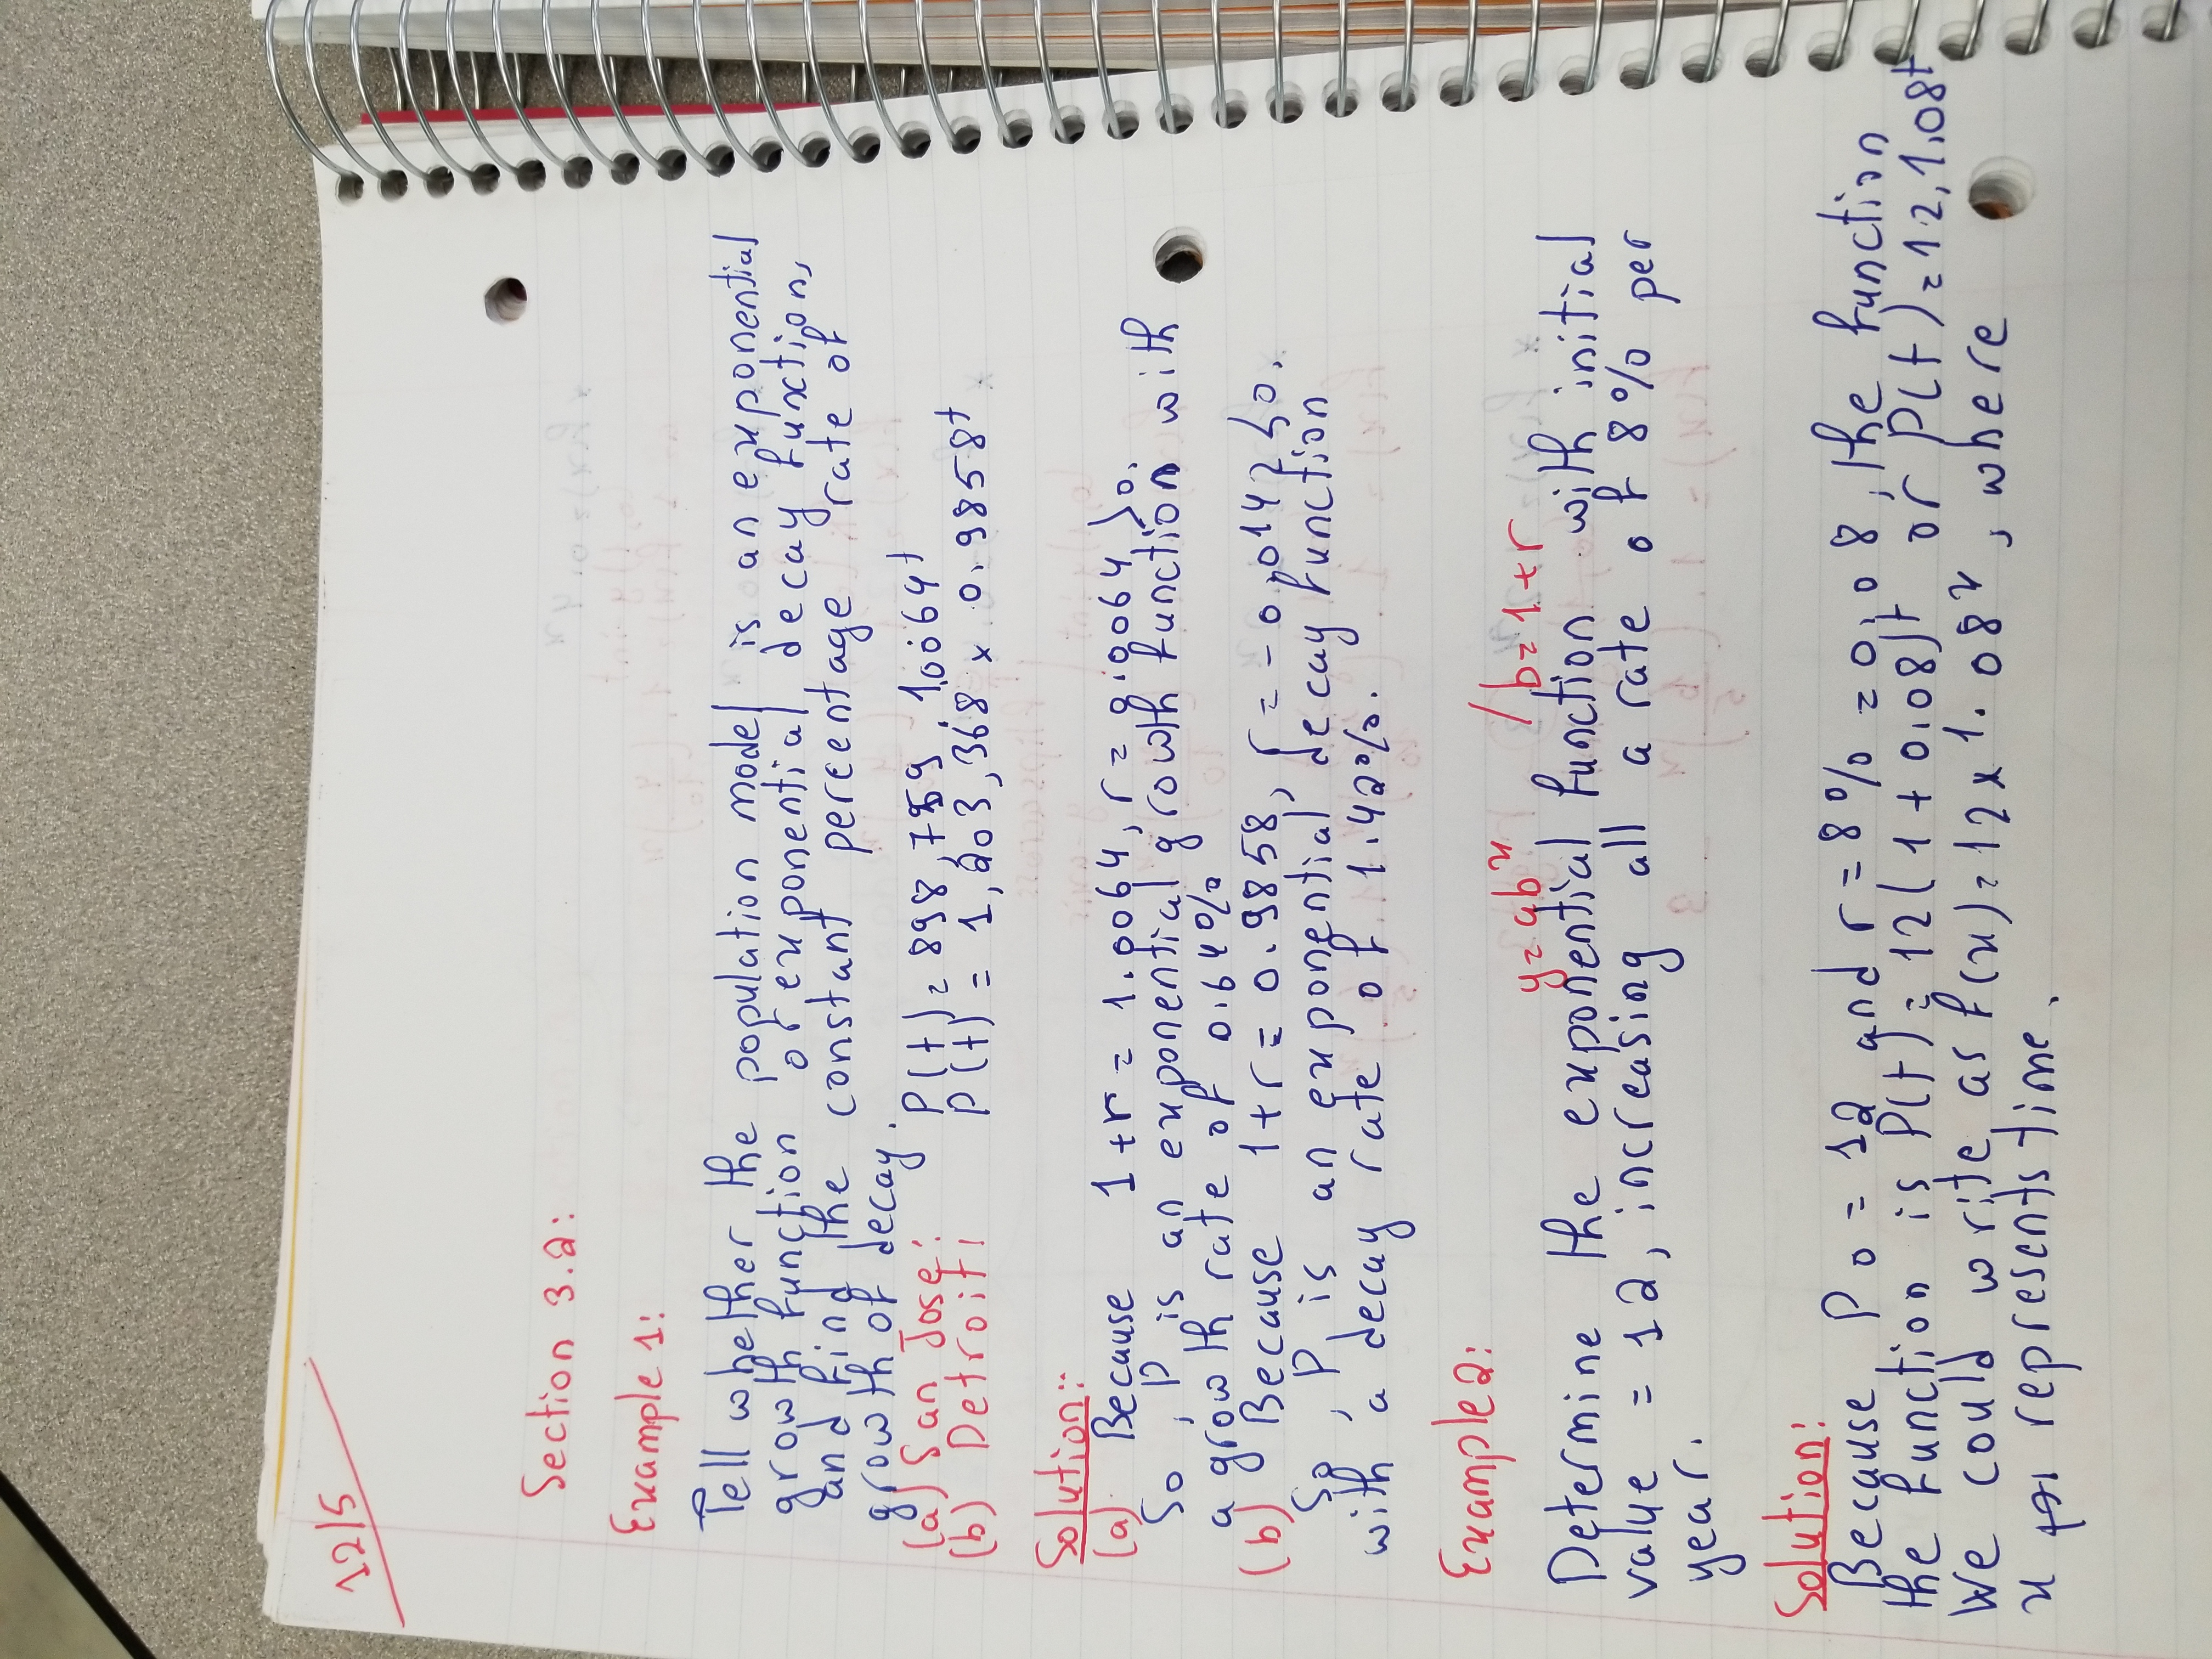 12/5
Section 3.2:
Example 1:
Tell whether the population model is an exponential
growth function or exponential decay function,
and find the constant percentage rate of
growth of decay.
(a) San Jose: P(t) = 898,759 · 1.0064^t
(b) Detroit: P(t) = 1,203,368 x 0.9858^t
Solution:
(a) Because 1+r = 1.0064, r = 0.0064 > 0.
So, P is an exponential growth function with
a growth rate of 0.64%
(b) Because 1+r = 0.9858, r = -0.0142 < 0.
So, P is an exponential decay function
with a decay rate of 1.42%.
Example 2:
y = ab^x / b = 1+r
Determine the exponential function with initial
value = 12, increasing all a rate of 8% per
year.
Solution:
Because P0 = 12 and r = 8% = 0.08, the function
the function is P(t) = 12(1 + 0.08)^t or P(t) = 12.1.08^t
We could write as f(x) = 12 x 1.08^x, where
x represents time.